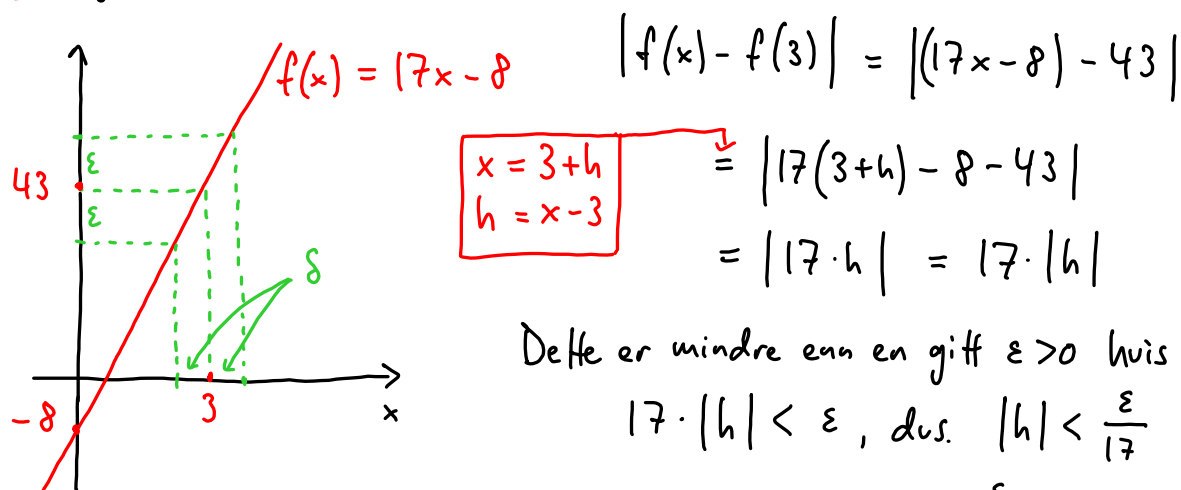 f(x) = 17x - 8
43
ε
ε
δ
-8
3
x
x = 3+h
h = x-3
|f(x) - f(3)| = |(17x-8) - 43|
= |17(3+h) - 8 - 43|
= |17·h| = 17·|h|
Dette er mindre enn en gitt ε>0 hvis
17·|h| < ε, dvs. |h| < ε/17